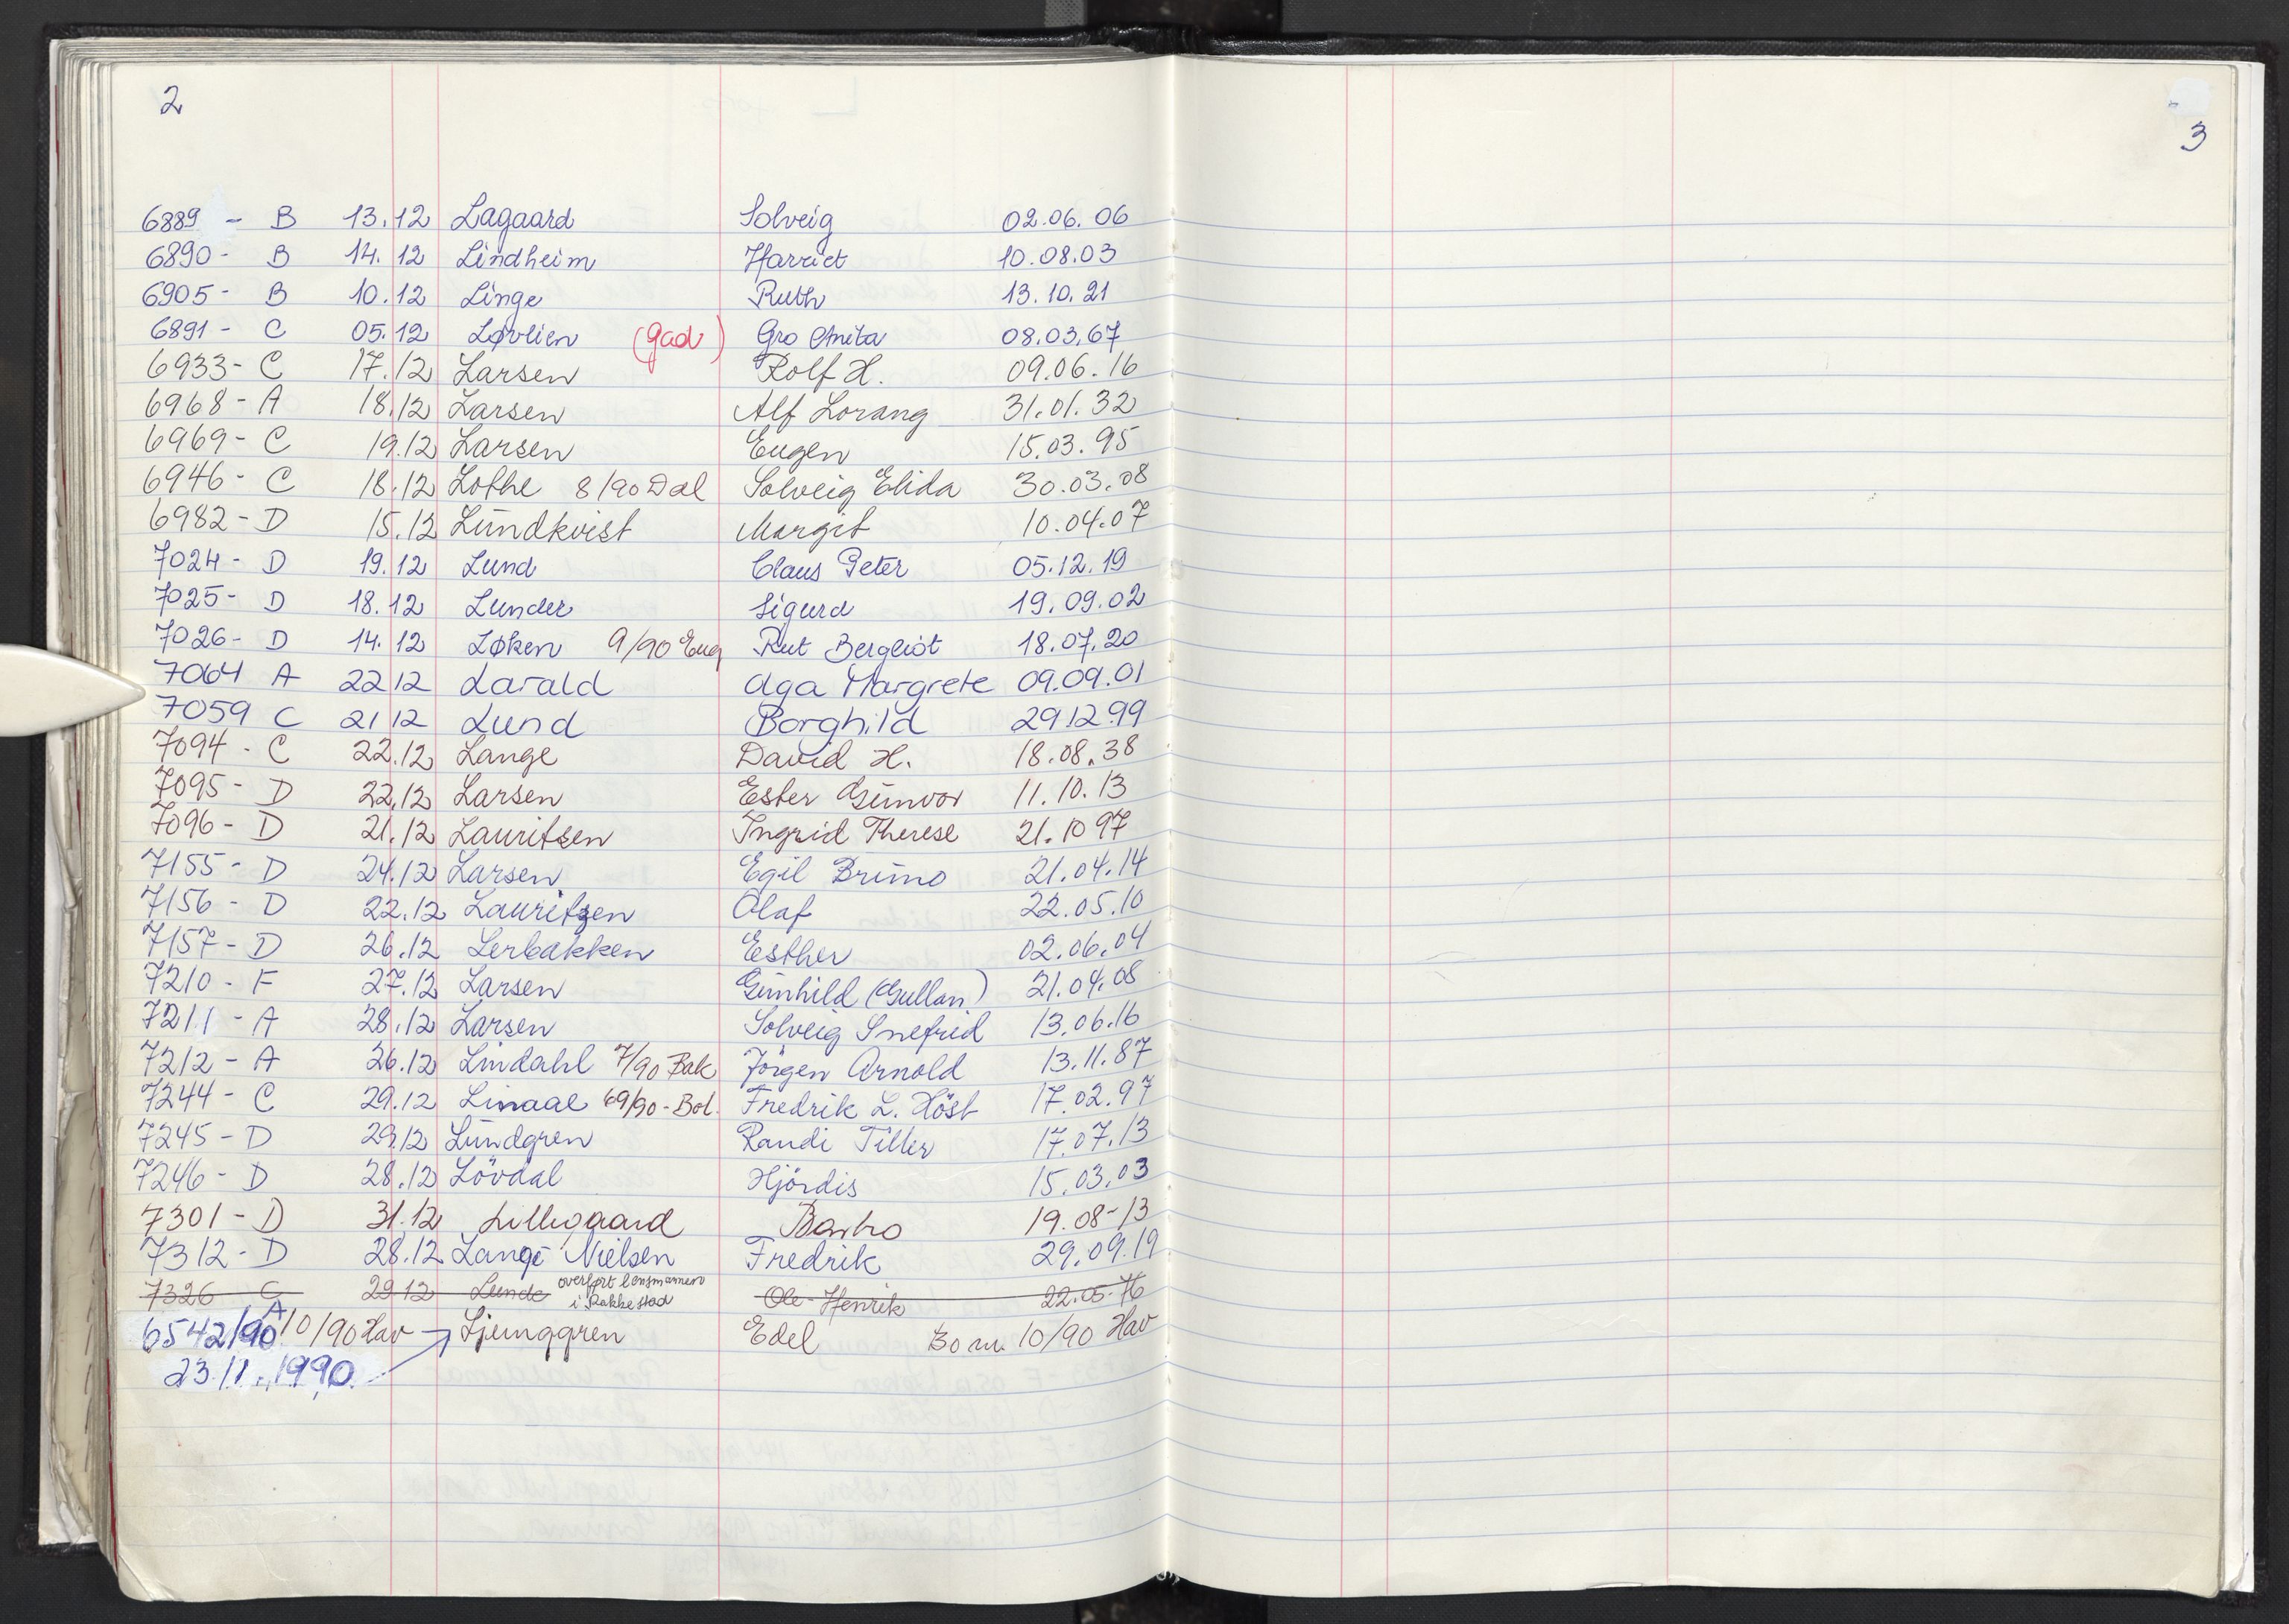 2
3
6889 - B 13.12 Lagaard Solveig 02.06.06
6890 - B 14.12 Lindheim Harriet 10.08.03
6905 - B 10.12 Linge Ruth 13.10.21
6891 - C 05.12 Løvlien (gad) Gro Anita 08.03.67
6933 - C 17.12 Larsen Rolf H. 09.06.16
6968 - A 18.12 Larsen Alf Lorang 31.01.32
6969 - C 19.12 Larsen Eugen 15.03.95
6946 - C 18.12 Lothe 8/90 Dal Solveig Elida 30.03.08
6982 - D 15.12 Lundkvist Margit 10.04.07
7024 - D 19.12 Lund Claus Peter 05.12.19
7025 - D 18.12 Lunder Sigurd 19.09.02
7026 - D 14.12 Løken 9/90 Eug Rut Bergliot 18.07.20
7064 A 22 12 Larald Aga Margrete 09.09.01
7059 C 21 12 Lund Borghild 29.12.99
7094 - C 22.12 Lange David H. 18.08.38
7095 - D 22.12 Larsen Ester Gunvor 11.10.13
7096 - D 21.12 Lauritsen Ingrid Therese 21.10 97
7155 - D 24.12 Larsen Egil Bruno 21.04.14
7156 - D 22.12 Lauritzen Olaf 22.05.10
7157 - D 26.12 Lerbakken Esther 02.06.04
7210 - F 27.12 Larsen Gunhild (Gullan) 21.04.08
7211 - A 28.12 Larsen Solveig Snefrid 13.06.16
7212 - A 26.12 Lindahl 7/90 Bak Jörgen Arnold 13.11.87
7244 - C 29.12 Linaae 69/90 - Bol. Fredrik L. Höst 17.02.97
7245 - D 29.12 Lundgren Randi Tiller 17.07.13
7246 - D 28.12 Lövdal Hjördis 15.03.03
7301 - D 31.12 Lillegaard Barbro 19.08-13
7312 - D 28.12 Lange Nielsen Fredrik 29.09.19
7326 C 29 12 Lunde overført lensmannen i Rakkestad Ole-Henrik 22.05.76
6542/90 A 10/90 Hav → Ljunggren Edel Bo nr. 10/90 Hav
23.11.1990